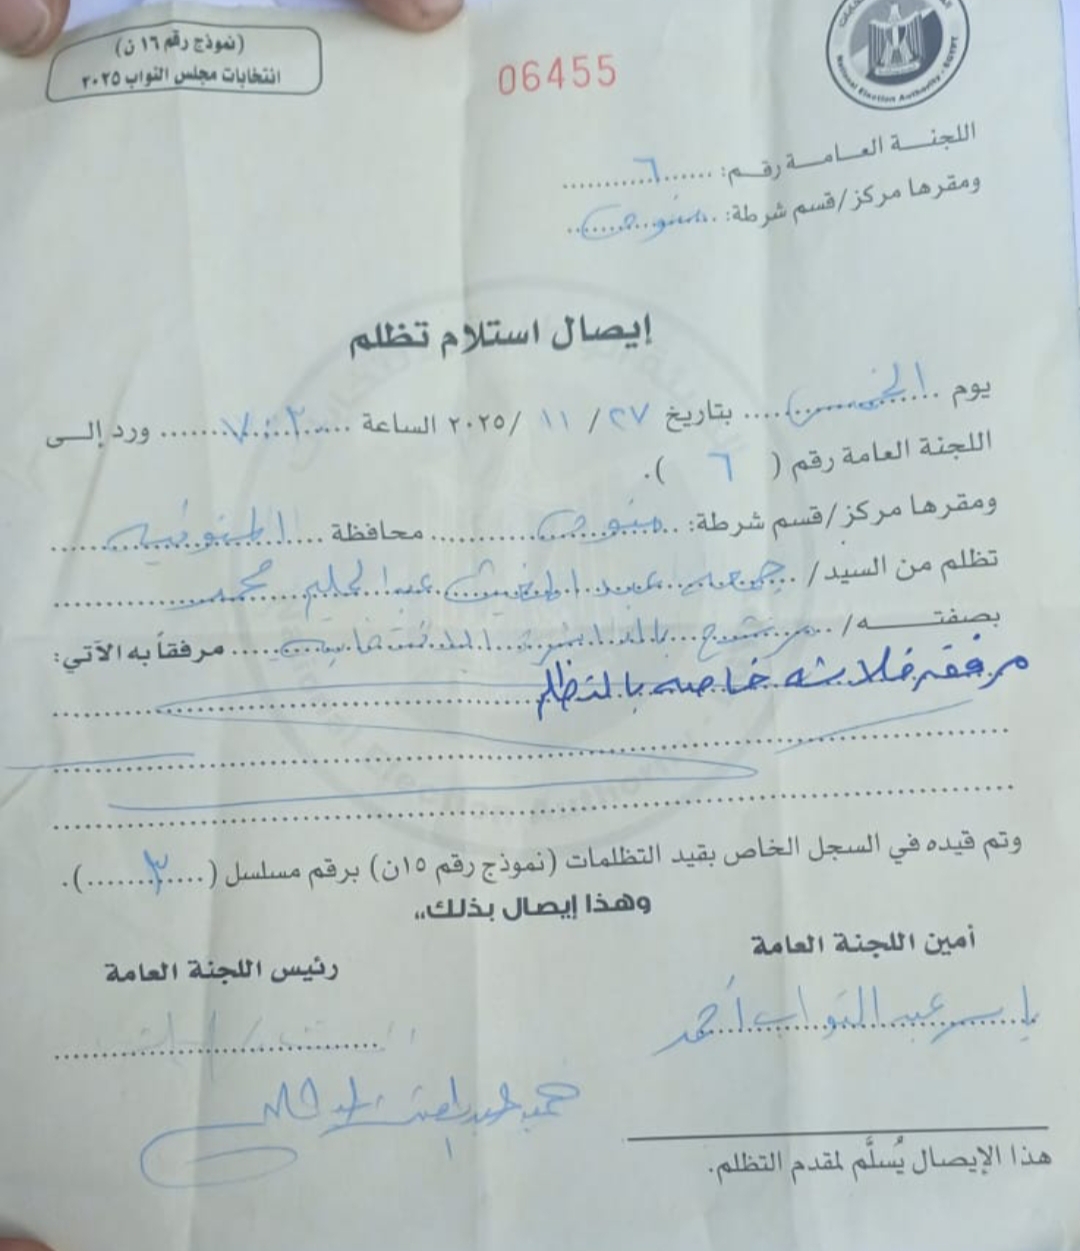 (نموذج رقم ١٦ ن)
انتخابات مجلس النواب ٢٠٢٥
06455
National Election Authority - EGYPT
اللجنـــة العـامـــة رقــم: ٦
ومقرها مركز/قسم شرطة: منوف
إيصال استلام تظلم
يوم الخميس بتاريخ ٢٧ / ١١ /٢٠٢٥ الساعة ٧:٠٢ ورد إلــى
اللجنة العامة رقم ( ٦ ).
ومقرها مركز/قسم شرطة: منوف محافظة المنوفيه
تظلم من السيد/ جمعه عبد عبدالحليم محمد
بصفتـــــــه/ مرشح بالدائرة الانتخابيه مرفقاً به الآتي:
مرفقه ثلاثه خاصه بالتظلم
وتم قيده في السجل الخاص بقيد التظلمات (نموذج رقم ١٥ن) برقم مسلسل (٣).
وهذا إيصال بذلك،،
أمين اللجنة العامة
رئيس اللجنة العامة
ياسر عبد التواب أحمد
هذا الإيصال يُسلَّم لمقدم التظلم.